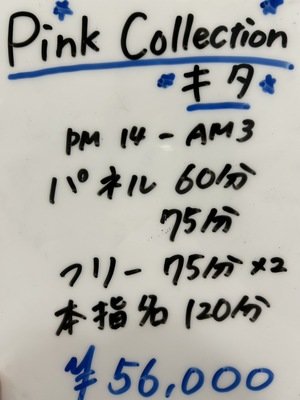 Pink Collection
キタ
PM 14 - AM 3
パネル 60分
75分
フリー 75分×2
本指名 120分
¥56,000